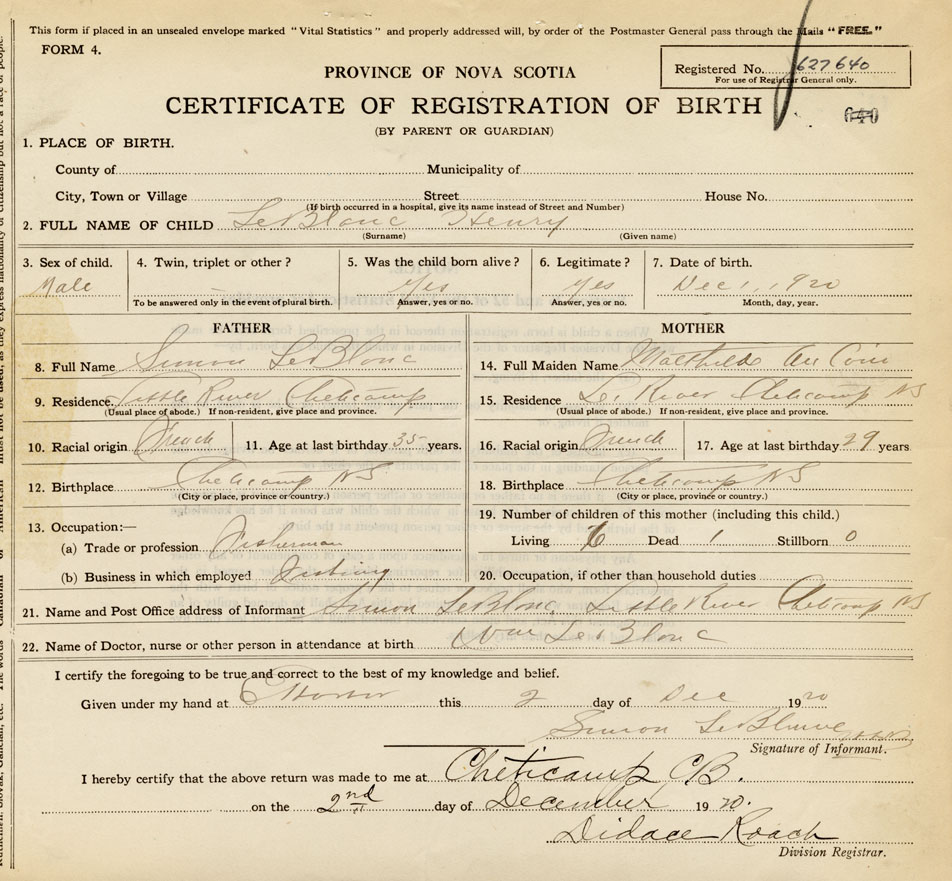 This form if placed in an unsealed envelope marked "Vital Statistics" and properly addressed will, by order of the Postmaster General pass through the Mails "FREE."
FORM 4.
Registered No. 627640
For use of Registrar General only.
PROVINCE OF NOVA SCOTIA
CERTIFICATE OF REGISTRATION OF BIRTH
640
(BY PARENT OR GUARDIAN)
1. PLACE OF BIRTH.
County of Municipality of
City, Town or Village Street House No.
(If birth occurred in a hospital, give its name instead of Street and Number)
2. FULL NAME OF CHILD LeBlanc Henry
(Surname) (Given name)
3. Sex of child. 4. Twin, triplet or other? 5. Was the child born alive? 6. Legitimate? 7. Date of birth.
Male Yes Yes Dec 1, 1920
To be answered only in the event of plural birth. Answer, yes or no. Answer, yes or no. Month, day, year.
FATHER MOTHER
8. Full Name Simon LeBlanc 14. Full Maiden Name Au Coin
9. Residence Little River Cheticamp 15. Residence Lt. River Cheticamp NS
(Usual place of abode.) If non-resident, give place and province. (Usual place of abode.) If non-resident, give place and province.
10. Racial origin French 11. Age at last birthday 35 years. 16. Racial origin French 17. Age at last birthday 29 years
12. Birthplace Cheticamp NS 18. Birthplace Cheticamp NS
(City or place, province or country.) (City or place, province or country.)
13. Occupation:— 19. Number of children of this mother (including this child.)
(a) Trade or profession Fisherman Living 6 Dead 1 Stillborn 0
(b) Business in which employed Fishing 20. Occupation, if other than household duties
21. Name and Post Office address of Informant Simon LeBlanc, Little River Cheticamp NS
22. Name of Doctor, nurse or other person in attendance at birth LeBlanc
I certify the foregoing to be true and correct to the best of my knowledge and belief.
Given under my hand at this 2 day of Dec 1920
Simon LeBlanc
Signature of Informant.
I hereby certify that the above return was made to me at Cheticamp C.B.
on the 2nd day of December 1920.
Didace Roach
Division Registrar.